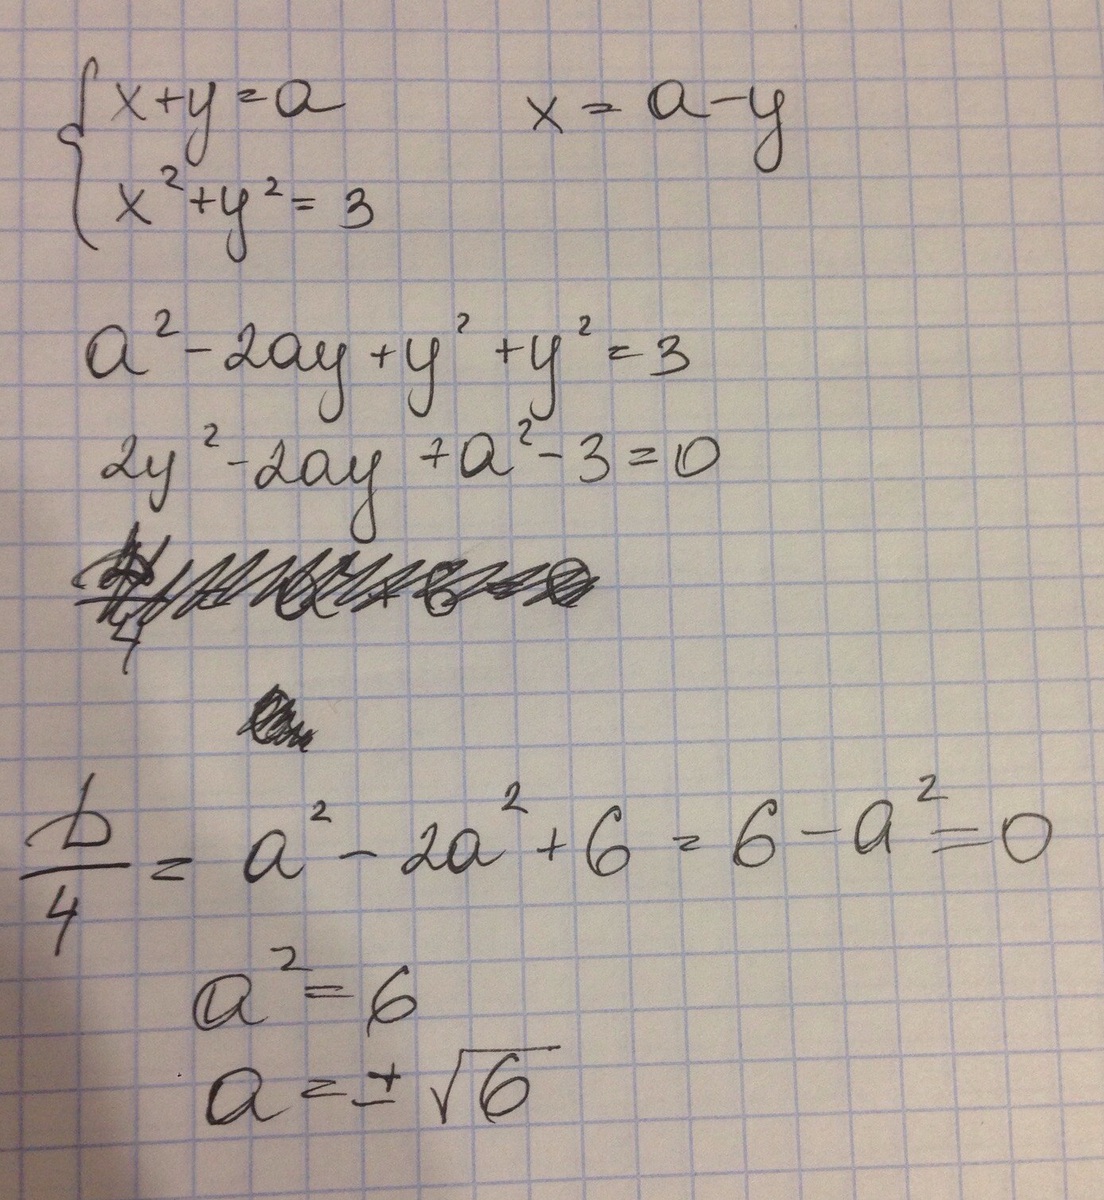 x+y=a
x=a-y
x²+y²=3
a²-2ay+y²+y²=3
2y²-2ay+a²-3=0
D/4=a²-2a²+6=6-a²=0
a²=6
a=±√6